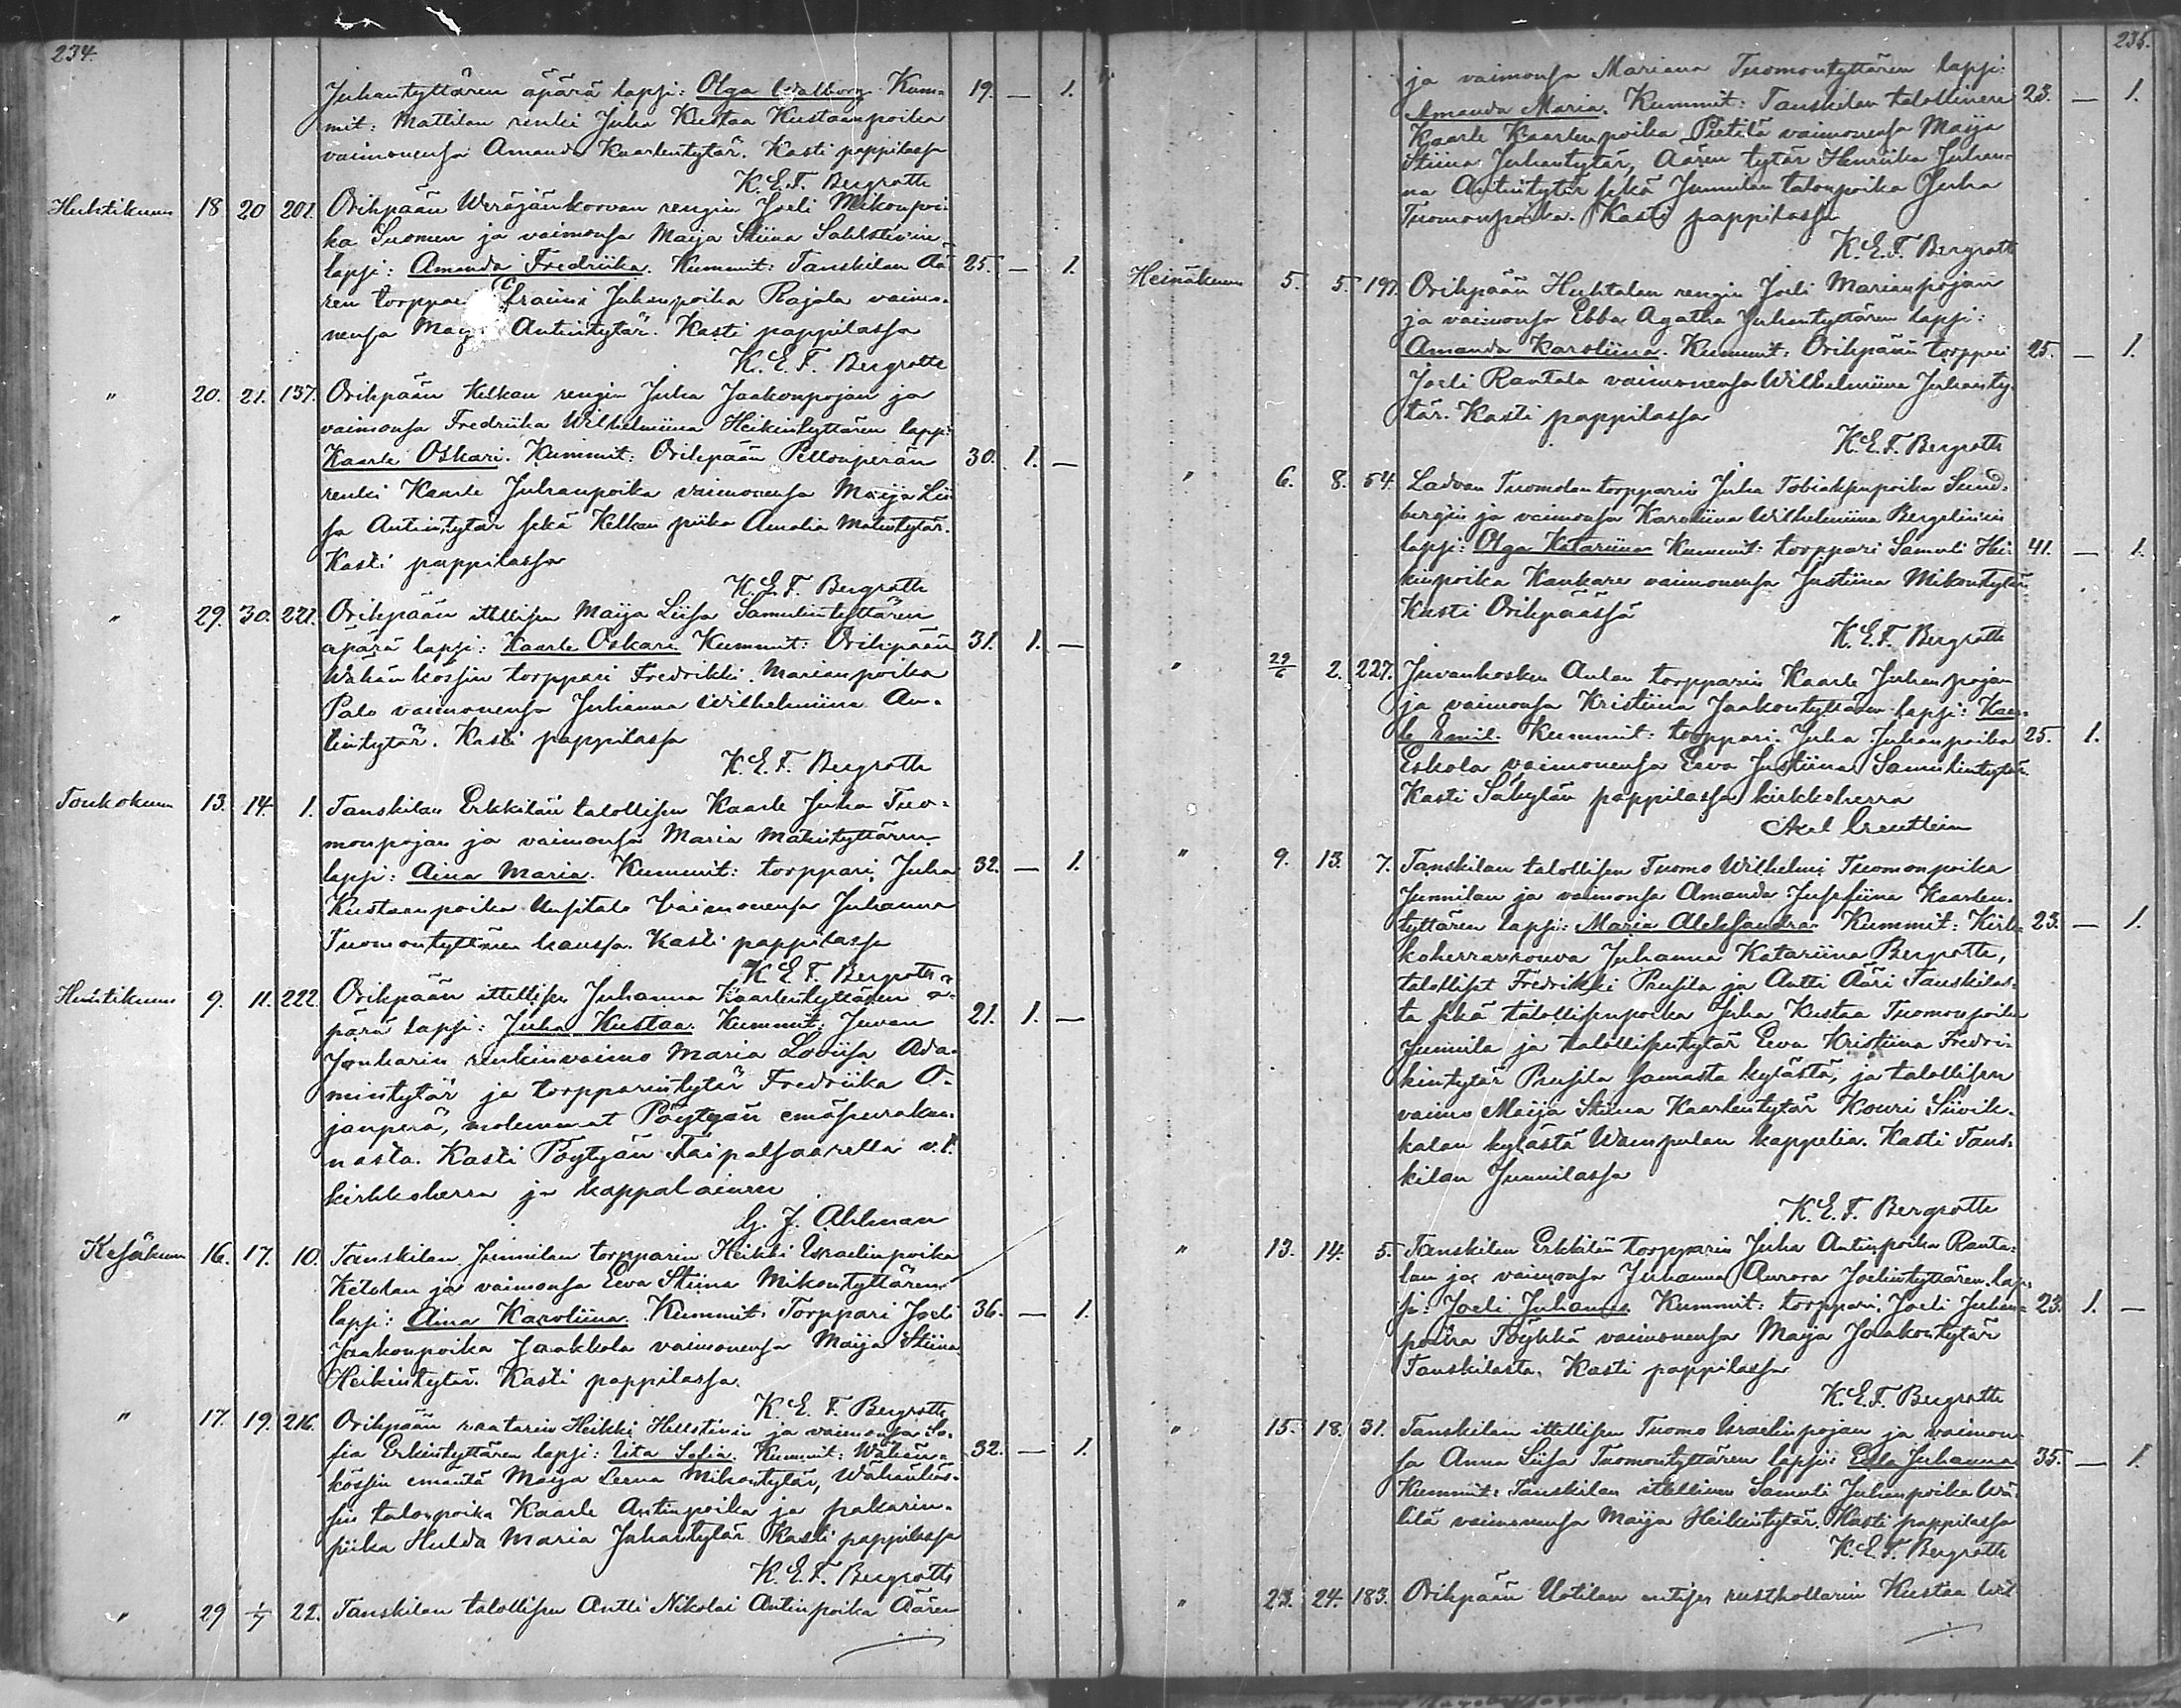 234.
Juhantyttären äpärä lapsi: Olga Walborg Kum= 19. — 1.
mit: Mattilan renki Juha Kustaa Kustaanpoika
vaimonensa Amanda Kaarlentytär. Kasti pappilassa
K. E. F. Bergroth
Huhtikuun 18 20 201. Orihpään Weräjänkorvan rengin Joeli Mikonpoi-
ka Suomen ja vaimonsa Maija Stiina Sahlstenin
lapsi: Amanda Fredriika. Kummit: Tanskilan Aä- 25. — 1.
ren torppari Efraimi Juhanpoika Rajala vaimo-
nensa Maija Antintytär. Kasti pappilassa
K. E. F. Bergroth
" 20. 21. 137. Orihpään Kelkan rengin Juha Jaakonpojan ja
vaimonsa Fredriika Wilhelmiina Heikintyttären lapsi:
Kaarle Oskari. Kummit: Orihpään Pellonperän 30. 1. —
renki Kaarle Juhanpoika vaimonensa Maija Lii-
sa Antintytär sekä Kelkan piika Amalia Matintytär.
Kasti pappilassa
K. E. F. Bergroth
" 29. 30. 221. Orihpään itellisen Maija Liisa Samulintyttären
äpärä lapsi: Kaarle Oskari Kummit: Orihpään 31. 1. —
Wähänkössin torppari Fredrikki Marianpoika
Palo vaimonensa Juhanna Wilhelmiina An-
tintytär. Kasti pappilassa
K. E. F. Bergroth
Toukokuun 13. 14. 1. Tanskilan Erkkilän talollisen Kaarle Juha Tuo-
monpojan ja vaimonsa Maria Matintyttären
lapsi: Aina Maria. Kummit: torppari Juha 32. — 1.
Kustaanpoika Uusitalo vaimonensa Juhanna
Tuomontyttären kanssa. Kasti pappilassa
K. E. F. Bergroth
Huhtikuun 9. 11. 222. Orihpään itellisen Juhanna Kaarlentyttären ä-
pärä lapsi: Juha Kustaa. Kummit: Juvan 21. 1. —
Jonkarin renkinvaimo Maria Loviisa Ada-
mintytär ja torpparintytär Fredriika O-
janperä, molemmat Pöytyän emäseurakun-
nasta. Kasti Pöytyän Taipalsaarella v.t.
kirkkoherra ja kappalainen
G. J. Ahlman
Kesäkuun 16. 17. 10. Tanskilan Junnilan torpparin Heikki Israelinpoika
Ketolan ja vaimonsa Eeva Stiina Mikontyttären
lapsi: Aina Karoliina. Kummit: Torppari Joeli 36. — 1.
Jaakonpoika Jaakkola vaimonensa Maija Stiina
Heikintytär. Kasti pappilassa.
K. E. F. Bergroth
" 17. 19. 216. Orihpään raatarin Heikki Hellstenin ja vaimonsa So-
fia Erkintyttären lapsi: Iita Sofia. Kummit: Wähän- 32. — 1.
kössin emäntä Maija Leena Mikontytär, Wähänkös-
sin talonpoika Kaarle Antinpoika ja pakarin-
piika Hulda Maria Juhantytär Kasti pappilassa
K. E. F. Bergroth
" 29 1/7 22. Tanskilan talollisen Antti Nikolai Antinpoika Aären
235.
ja vaimonsa Mariana Tuomontyttären lapsi:
Amanda Maria. Kummit: Tanskilan talollinen 23. — 1.
Kaarle Kaarlenpoika Pietilä vaimonensa Maija
Stiina Juhantytär, Aären tytär Henriika Juhan-
na Antintytär sekä Junnilan talonpoika Juha
Tuomonpoika. Kasti pappilassa
K. E. F. Bergroth
Heinäkuun 5. 5. 197. Orihpään Huhtalan rengin Joeli Marianpojan
ja vaimonsa Ebba Agatha Juhantyttären lapsi:
Amanda Karoliina. Kummit: Orihpään torppari 25. — 1.
Joeli Rantala vaimonensa Wilhelmiina Juhanty-
tär. Kasti pappilassa
K. E. F. Bergroth
" 6. 8. 54. Ladvan Tuomolan torpparin Juha Tobiaksenpoika Sund-
bergin ja vaimonsa Karoliina Wilhelmiina Bergelinin
lapsi: Olga Katariina Kummit: torppari Samuli Hei- 41. — 1.
kinpoika Kankare vaimonensa Justiina Mikontytär.
Kasti Orihpäässä
K. E. F. Bergroth
" 29/6 2. 227. Juvankosken Aulan torpparin Kaarle Juhanpojan
ja vaimonsa Kristiina Jaakontyttären lapsi: Kaar-
le Emil. Kummit: torppari Juha Juhanpoika 25. 1.
Eskola vaimonensa Eeva Justiina Samulintytär
Kasti Säkylän pappilassa kirkkoherra
Axel Creutlein
" 9. 13. 7. Tanskilan talollisen Tuomo Wilhelmi Tuomonpoika
Junnilan ja vaimonsa Amanda Josefiina Kaarlen-
tyttären lapsi: Maria Aleksandra Kummit: Kirk- 23. — 1.
koherranrouva Juhanna Katariina Bergroth,
talolliset Fredrikki Prusila ja Antti Ääri Tanskilas-
ta sekä talollisenpoika Juha Kustaa Tuomonpoika
Junnila ja talollisentytär Eeva Kristiina Fredri-
kintytär Prusila samasta kylästä, ja talollisen
vaimo Maija Stiina Kaarlentytär Kouri Siivik-
kalan kylästä Wampulan kappelia. Kasti Tans-
kilan Junnilassa
K. E. F. Bergroth
" 13. 14. 5. Tanskilan Erkkilän torpparin Juha Antinpoika Ranta-
lan ja vaimonsa Juhanna Aurora Joelintyttären lap-
si: Joeli Juhannes Kummit: torppari Joeli Juhan- 23. 1. —
poika Töykkä vaimonensa Maija Jaakontytär
Tanskilasta. Kasti pappilassa
K. E. F. Bergroth
" 15. 18. 31. Tanskilan itellisen Tuomo Israelinpojan ja vaimon-
sa Anna Liisa Tuomontyttären lapsi: Edla Juhanna 35. — 1.
Kummit: Tanskilan itellinen Samuli Juhanpoika Wä-
lilä vaimonensa Maija Heikintytär. Kasti pappilassa
K. E. F. Bergroth
" 23. 24. 183. Orihpään Uotilan entisen rusthollarin Kustaa Wil